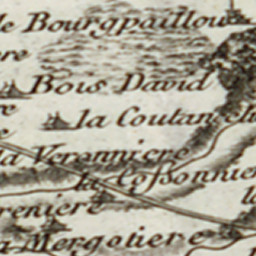 le Bourgpaillou
ere
Bois David
la Coutan
la Veronniere
la Cossonnier
reniere
Mergotiere